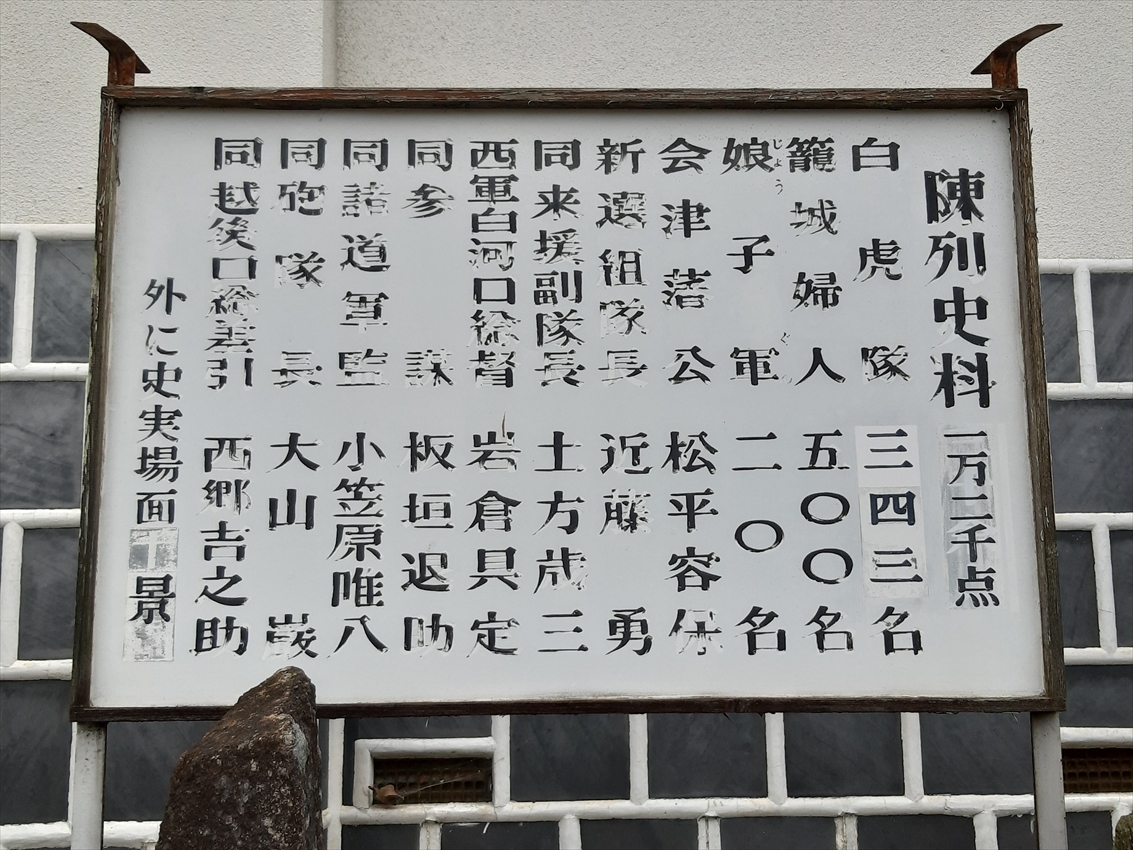 陳列史料 一万二千点
白虎隊 三四三名
籠城婦人 五〇〇名
娘子軍 二〇名
じょう
ぐ
会津藩公 松平容保
新選組隊長 近藤勇
同来援副隊長 土方歳三
西軍白河口総督 岩倉具定
同参謀 板垣退助
同諸道軍監 小笠原唯八
同砲隊長 大山巌
同越後口総差引 西郷吉之助
外に史実場面十景